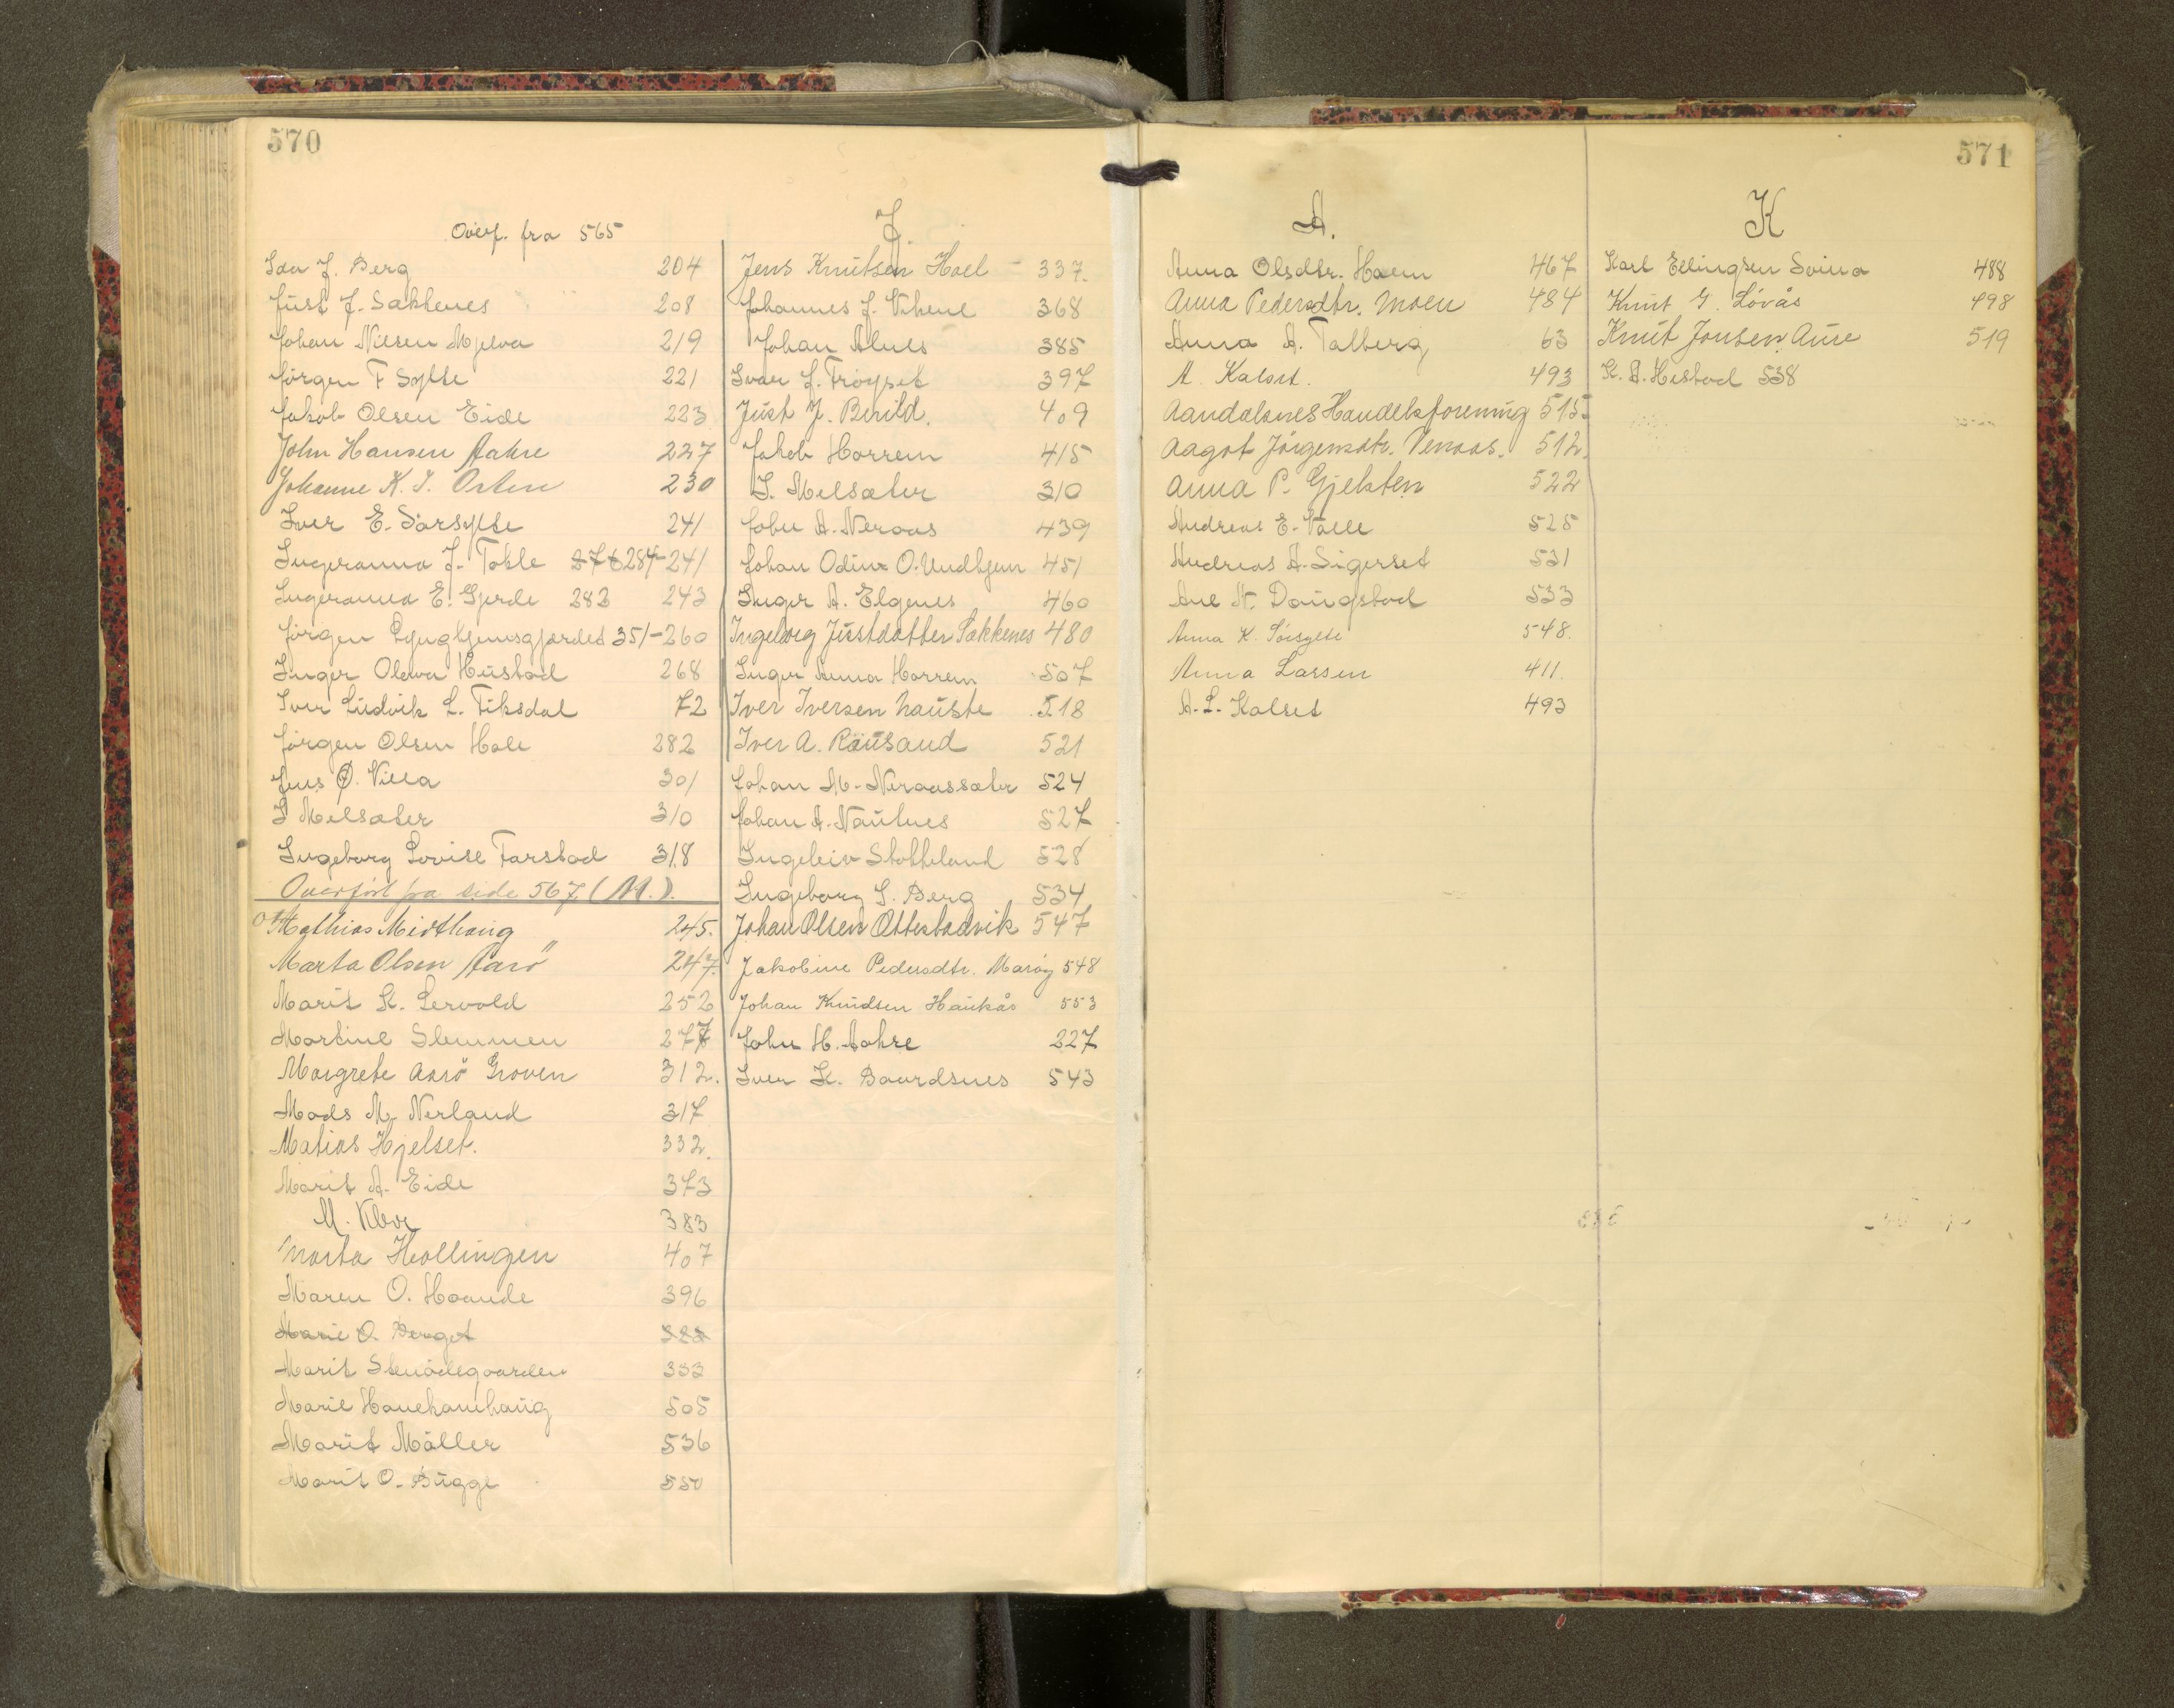 570
Overf. fra 565
Ida J. Berg 204
Just J. Sækkenes 208
Johan Nilsen Mjelva 219
Jörgen T Sylte 221
Jakob Olsen Eide 223
John Hansen Aahre 227
Johanne K. I. Osten 230
Iver E. Sörsylte 241
Ingeranna J. Tokle 276 284-241
Ingeranna E. Gjerde 282 243
Jörgen Lyngheimsgjerdet 351-260
Inger Oldva Hustad 268
Iver Ludvik L. Fiksdal 72
Jörgen Olsen Hole 282
Jens Ø. Villa 301
I Melsæter 310
Ingeborg Lovise Farstad 318
Overfört fra side 567 (M.).
Mathias Midthaug 245.
Marta Olsen Aarö 247.
Marit K. Lervold 252
Martine Slemmen 277
Margrete Aarö Groven 312.
Mads M. Nerland 317
Matias Hjelset. 332.
Marit A. Eide 373
M. Klver 383
Marta Hollingen 407
Maren O. Haande 396
Marie O. Berget 388
Marit Stenödegaarden 353
Marie Hanehamhaug 505
Marit Möller 536
Marit O. Bugge 550
J.
Jens Knutsen Hoel - 337.
Johannes J. Vikene 368
Johan Alnes 385
Ivar J. Tröyset 397
Just J. Berild. 409
Jakob Horrem 415
I. Melsæter 310
John A. Neraas 439
Johan Odin O. Undhjem 451
Inger A. Elgenes 460
Ingeborg Justdatter Sækkenes 480
Inger Anna Horrem 507
Iver Iversen Nauste 518
Iver A. Rausand 521
Johan M. Neraassæter 524
Johan A. Nautnes 527
Ingleiv Stokkeland 528
Ingeborg S. Berg 534
Johan Olsen Ottestadvik 547
Jakobine Pedersdtr. Maröy 548
Johan Knudsen Haukås 553
John H. Aahre 227
Iver K. Baardsnes 543
571
A.
Anna Olsdtr. Haem 467
Anna Pedersdtr. Moen 484
Anna A. Talberg 63
A. Kalset. 493
Aandalsnes Handelsforening 515.
Aagot Jörgensdtr. Venaas. 512.
Anna P. Gjelsten 522
Andreas E. Valle 525
Andreas A. Sigerset 531
Ane N. Daugstad 533
Anna K. Sörsylte 548.
Anna Larsen 411.
A. L. Kalset 493
K
Karl Ellingsen Svina 488
Knut G. Lövås 498
Knut Jonsen Aure 519
K. A. Hestad 538